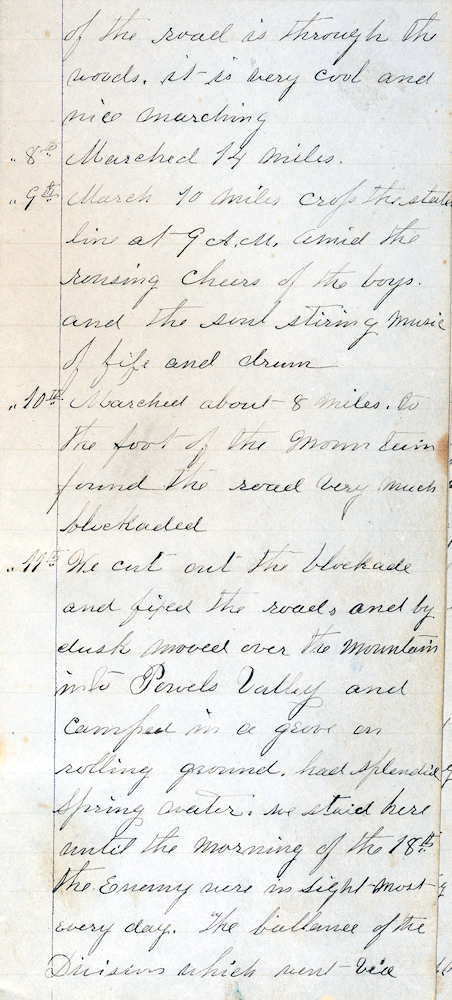 of the road is through the
woods. it is very cool and
nice marching
" 8th Marched 14 miles.
" 9th March 10 miles cross the state
line at 9 A.M. amid the
rousing cheers of the boys.
and the soul stiring music
of fife and drum
" 10th Marched about 8 miles. to
the foot of the mountain
found the road very much
blockaded
" 11th We cut out the blockade
and fixed the roads and by
dusk moved over the mountain
into Powels Valley and
camped in a grove on
rolling ground. had splendid
spring water. we staid here
until the morning of the 18th
the Enemy were in sight most
every day. The ballance of the
Division which went vice